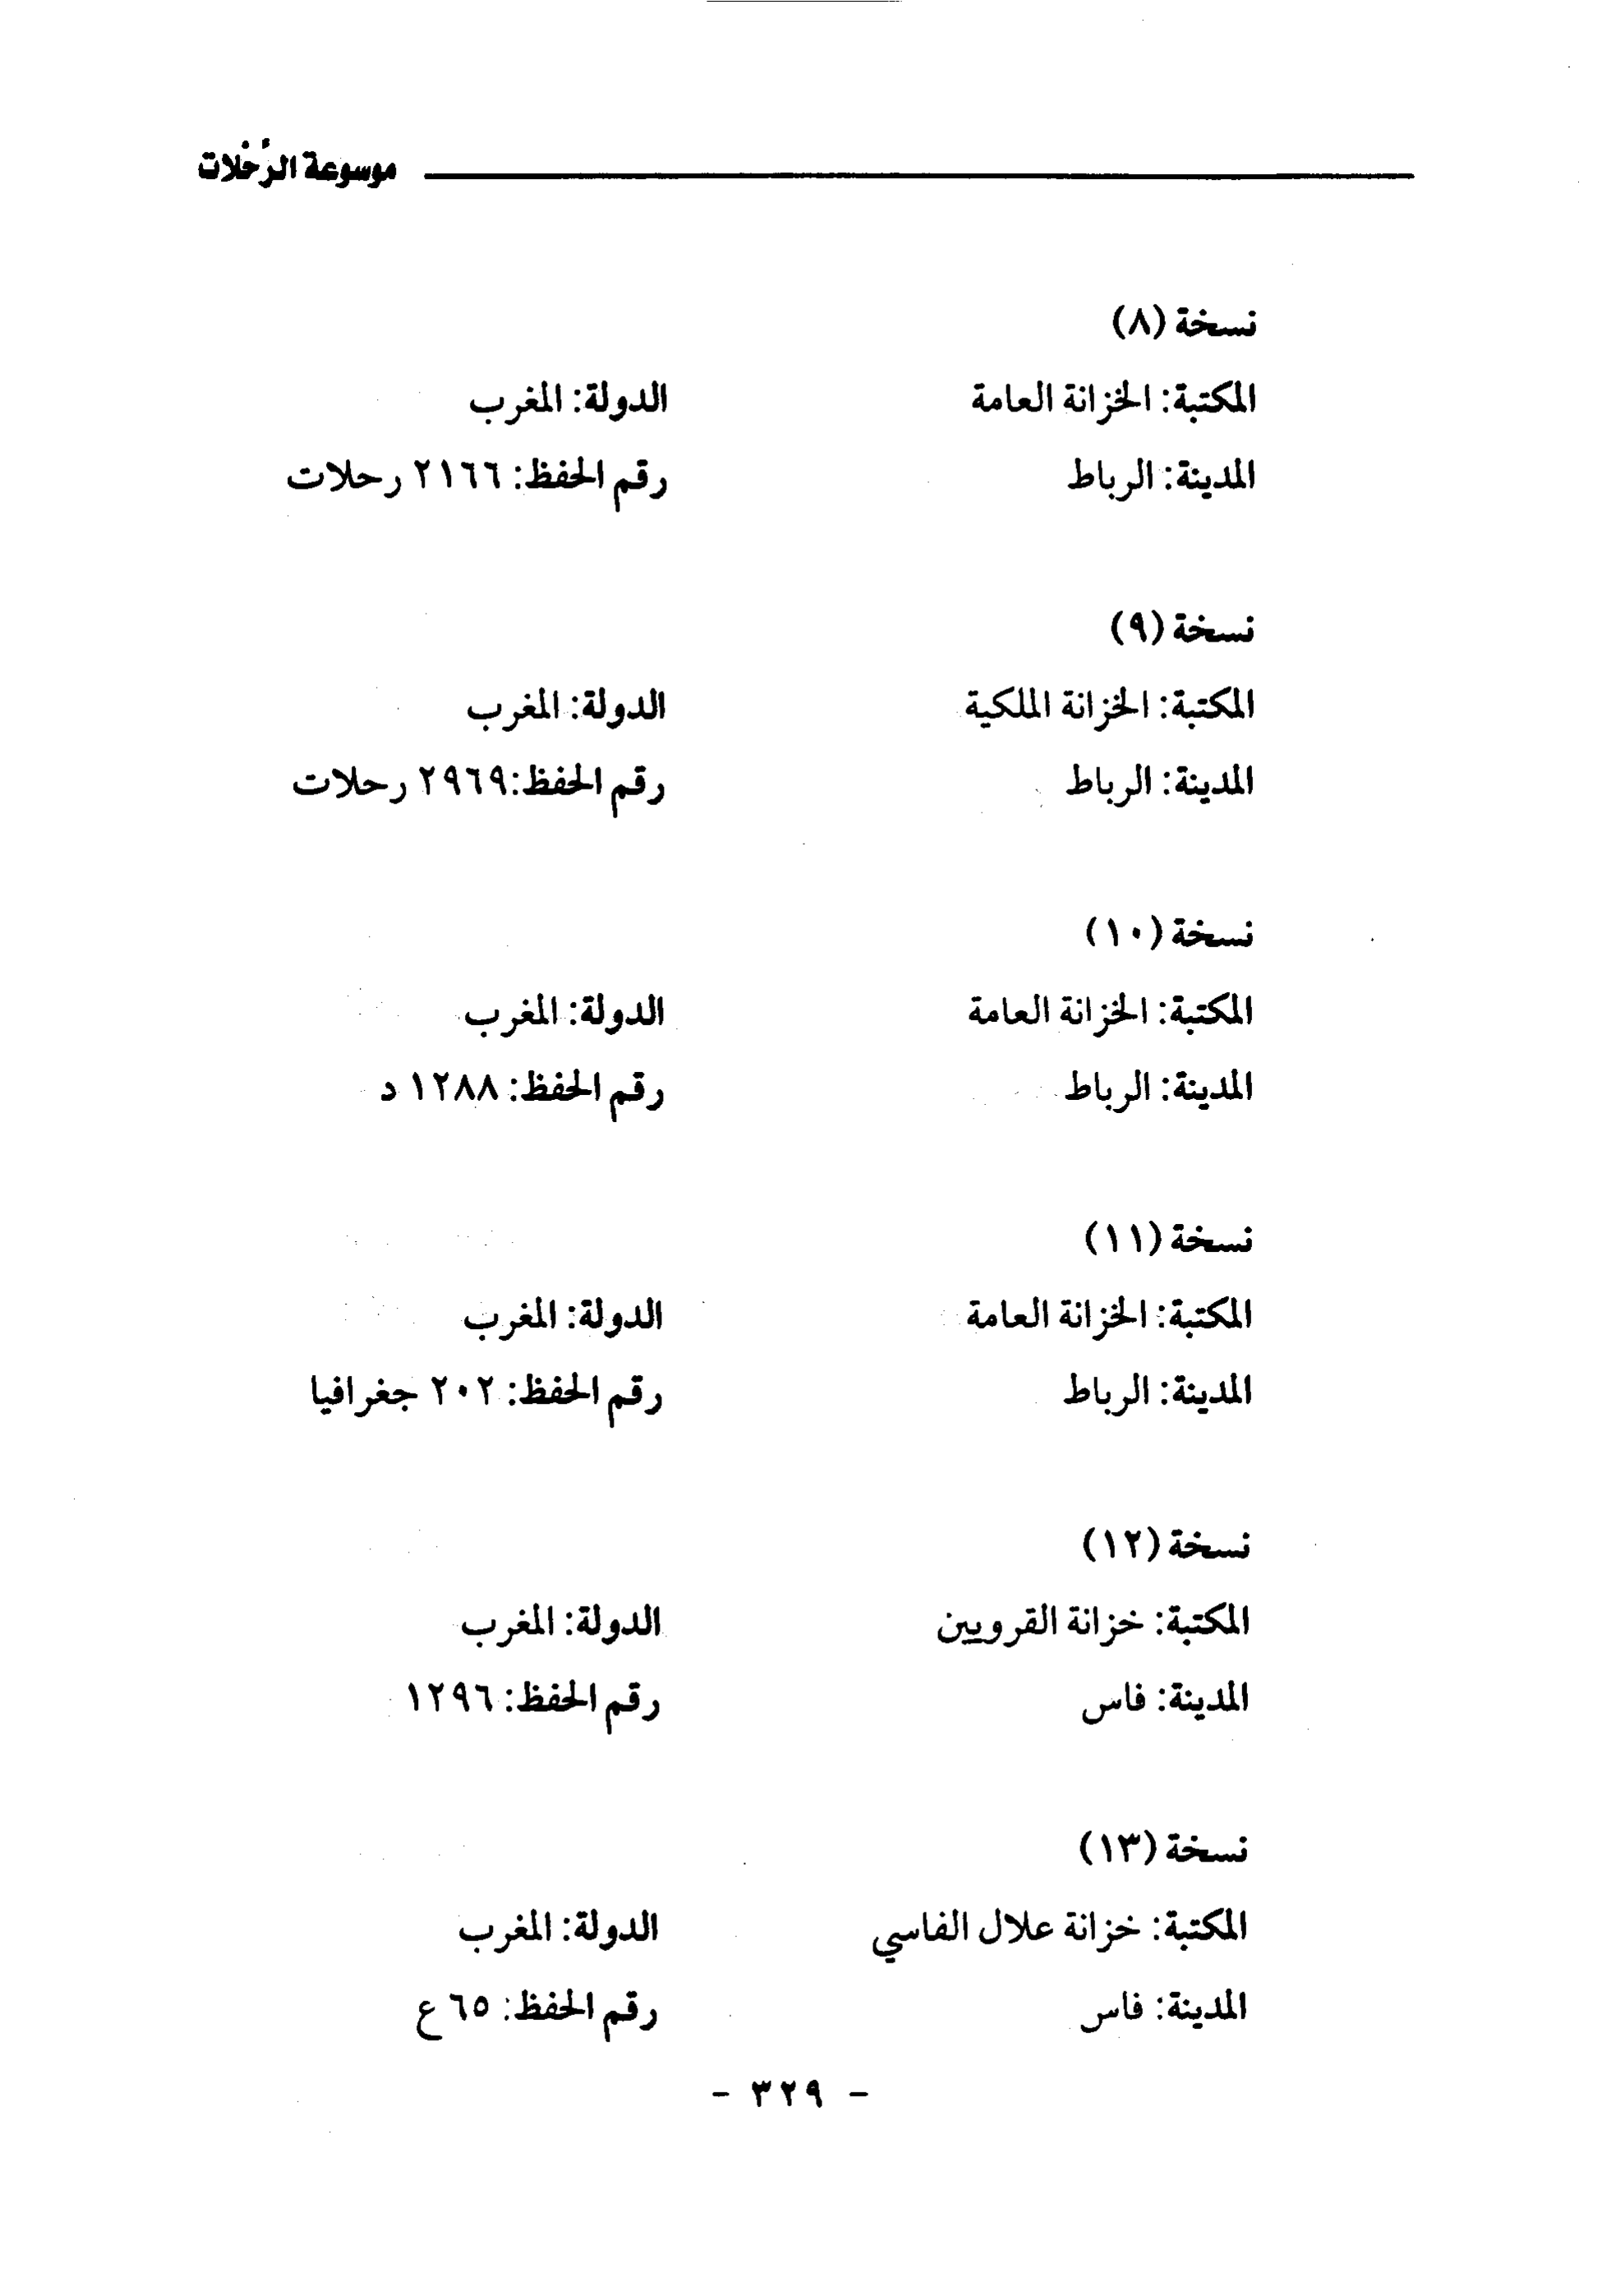 موسوعة الرّحلات
نسخة (٨)
المكتبة: الخزانة العامة الدولة: المغرب
المدينة: الرباط رقم الحفظ: ٢١٦٦ رحلات
نسخة (٩)
المكتبة: الخزانة الملكية الدولة: المغرب
المدينة: الرباط رقم الحفظ:٢٩٦٩ رحلات
نسخة (١٠)
المكتبة: الخزانة العامة الدولة: المغرب
المدينة: الرباط رقم الحفظ: ١٢٨٨ د
نسخة (١١)
المكتبة: الخزانة العامة الدولة: المغرب
المدينة: الرباط رقم الحفظ: ٢٠٢ جغرافيا
نسخة (١٢)
المكتبة: خزانة القرويين الدولة: المغرب
المدينة: فاس رقم الحفظ: ١٢٩٦
نسخة (١٣)
المكتبة: خزانة علال الفاسي الدولة: المغرب
المدينة: فاس رقم الحفظ: ٦٥ ع
- ٣٢٩ -